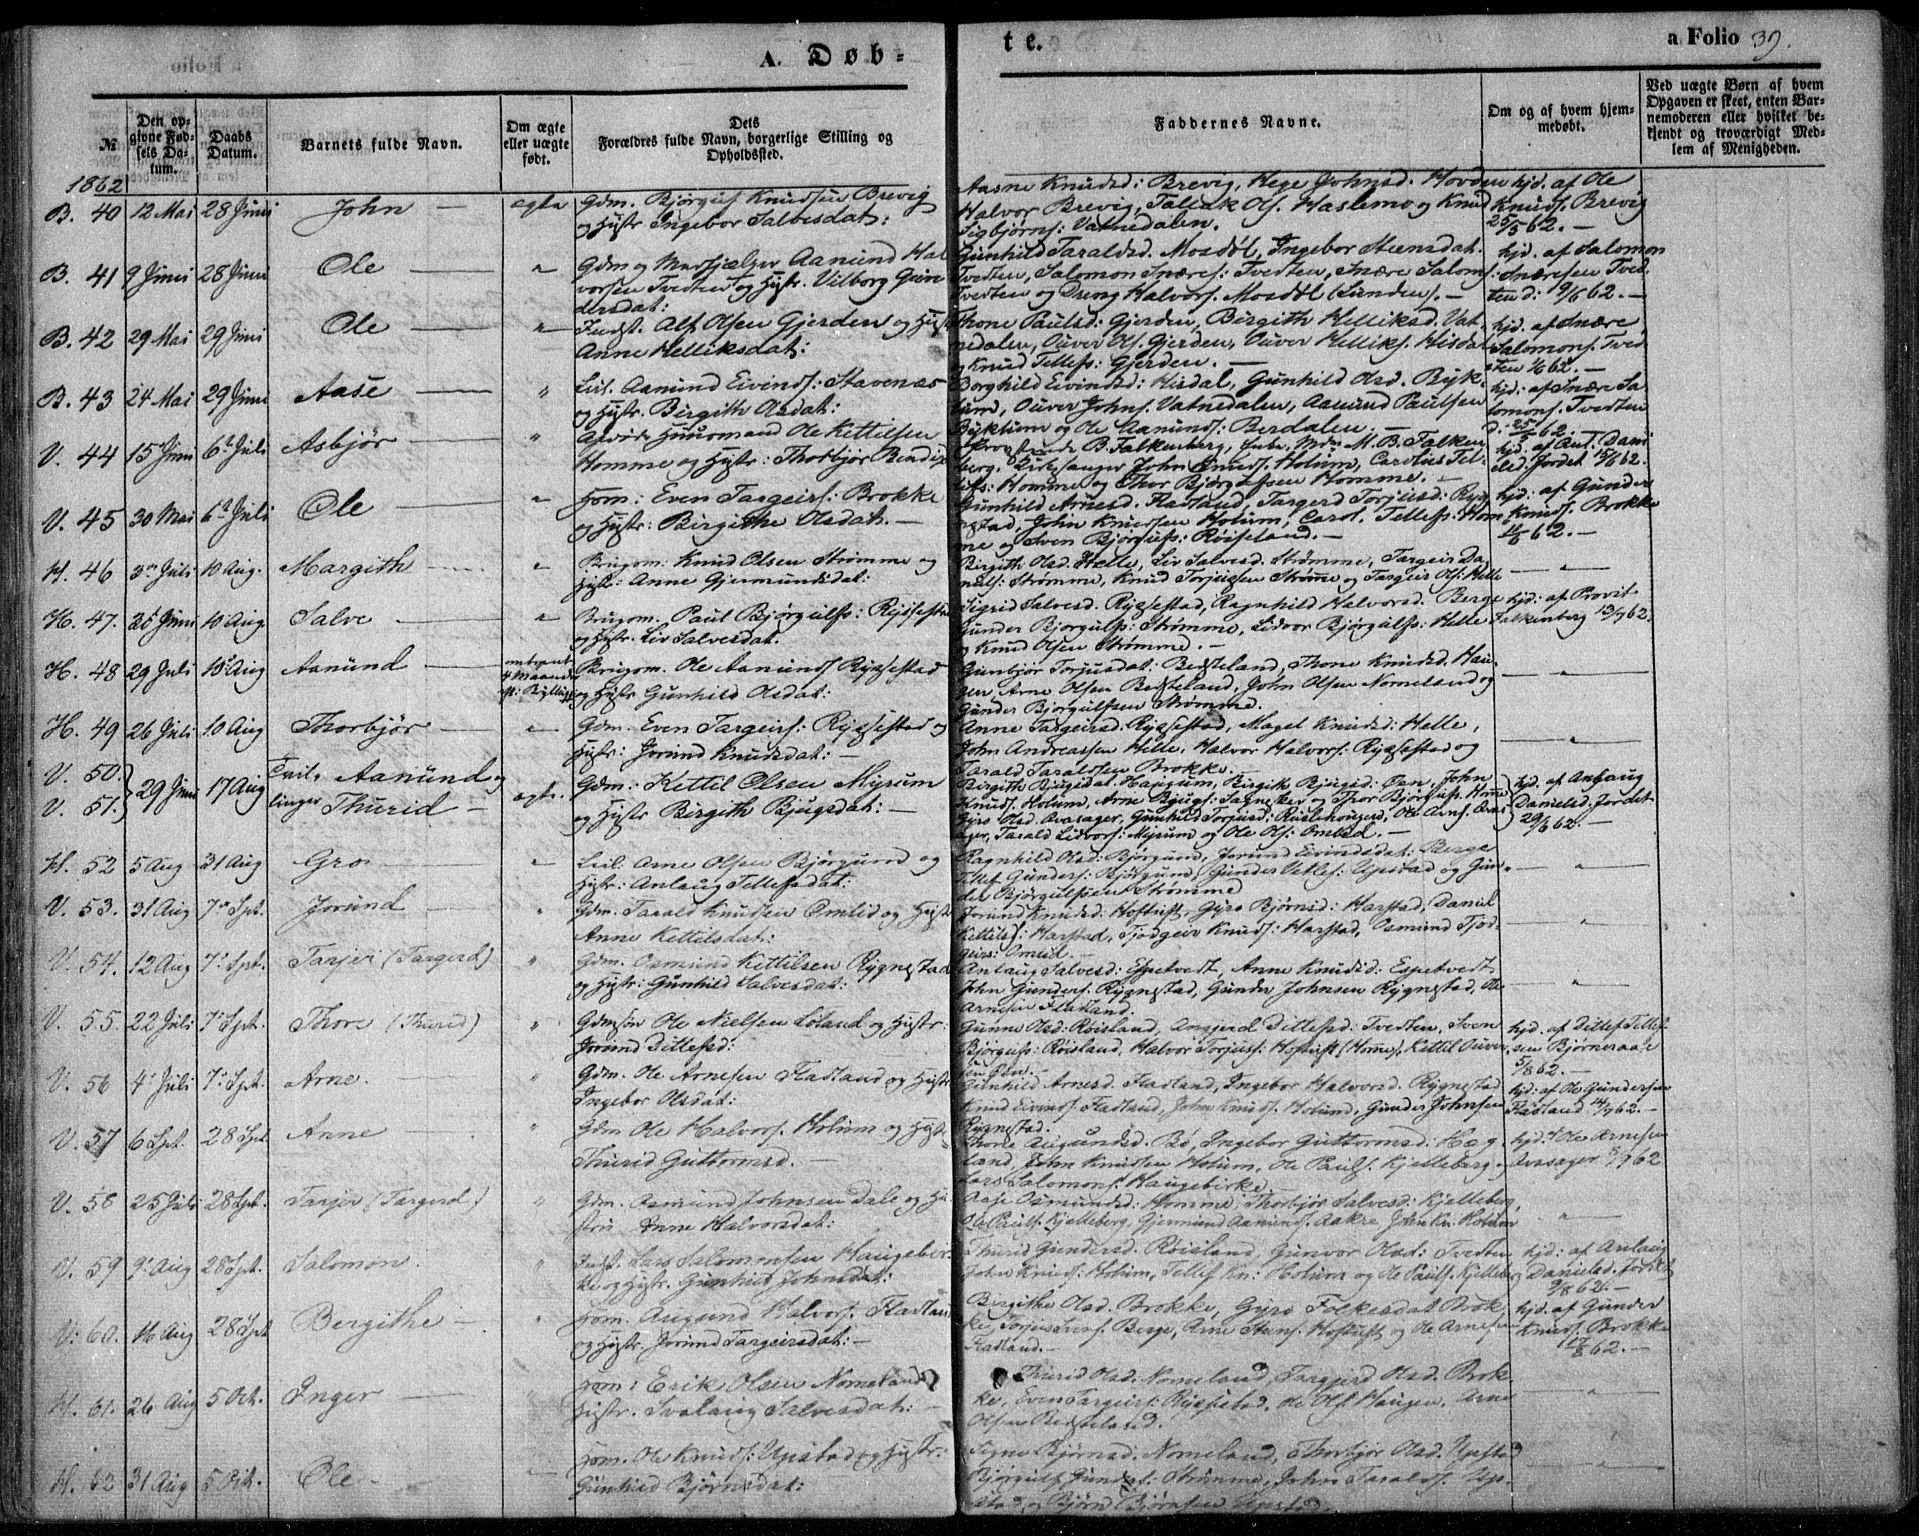 A. Døb-
te.
a Folio 39.
№
Den op-
givne Fød-
sels Da-
tum.
Daabs
Datum.
Barnets fulde Navn.
Om ægte
eller uægte
født.
Dets
Forældres fulde Navn, borgerlige Stilling og
Opholdssted.
Faddernes Navne.
Om og af hvem hjem-
medøbt.
Ved uægte Børn af hvem
Opgaven er skeet, enten Bar-
nemoderen eller hvilket be-
kjendt og troværdigt Med-
lem af Menigheden.
1862
B. 40 12 Mai 28 Juni John — ægte Gdm. Bjørgulf Knudsen Brevig
og Hustr Ingebor Salvesdat:
Aasne Knudsd: Brevig, Hege Johnsd. Hovden
Halvor Brevig, Tallak Ols. Haslemo og Knud
Sigbjørns: Vatnedalen.
hjd. af Ole
Knuds. Brevig
25/5 62. —
B. 41 9 Juni 28 Juni Ole — " Gdm og Aamund Hal
vorsen Tvedten og Hustr. Vilborg Gun
dersdat:
Gunhild Taraldsd. Mosdøl, Ingebor Steensdat.
Tvedten, Salomon Snæres: Tvedten, Snære Saloms:
Tvedten og Dreng Halvors. Mosdøl (Lunden). —
hjd. af Salomon
Snæresen Tved
ten d: 9/6 62. —
B. 42 29 Mai 29 Juni Ole — " Indst: Alf Olsen Gjerden og Hustr
Anne Helliksdat:
Thone Paulsd: Gjerden, Birgith Helliksd. Vat-
nedalen, Ouver Ols. Gjerden, Ouver Helliks. Hisdal
og Knud Tellefs: Gjerden. —
hjd. af Snære
Salomons. Tved
ten 1/6 62. —
B. 43 24 Mai 29 Juni Aase — " Leil. Aamund Eivinds: Stavenæs
og Hustr. Birgith Olsdat:
Borghild Eivindsd: Hisdal, Gunhild Olsd. Byk-
lum, Ouver Johns. Vatnedalen, Aamund Paulsen
Byklum og Ole Aamunds: Berdalen. —
hjd: af Snære Sa
lomons. Tvedten
d: 25/5 62. —
V. 44 15 Juni 6te Juli Asbjør — " Huusmand Ole Kettilsen
Homme og Hustr: Thorbjør
B. Falkenberg, M. B. Falken
berg. Kirkesanger John Knuds. Holum, Carolus Tel-
lefs: Homme og Thor Bjørgulfsen Homme. —
hjd: af Ant. Dani
elsd. Jordet 15/6 62.
V. 45 30 Mai 6te Juli Ole — " Hom: Even Targeirs: Brokke
og Hustr: Birgithe Olsdat. —
Gunhild Arnesd. Flatland, Targerd Torjusd: Ryg
nestad, John Knudsen Holum, Carol. Tellefs: Hom
me og Sven Bjørgulfs: Røiseland. —
hjd: af Gunder
Knuds. Brokke
62. —
H. 46 3die Juli 10 Aug. Margith — " Brugom. Knud Olsen Strømme og
Hustr: Anne Gjermundsdat:
Birgith Olsd. Helle, Liv Salvesd. Strømme, Targeir Da
niels: Strømme, Knud Torjusen Strømme og Targeir Ols: Helle
— " —
H. 47. 25 Juni 10 Aug. Salve — " Brugom. Paul Bjørgulfs: Rysestad
og Hustr. Liv Salvesdat.
Sigrid Salvesd. Rysestad, Ragnhild Halvorsd. Berge
Gunder Bjorgulfs: Strømme, Lidvor Bjørgulfs: Helle
og Knud Olsen Strømme. —
hjd: af Provst
Falkenberg 13/7 62.
H. 48 29 Juli 10 Aug Aanund — omtrent
4 Maaneder
Brugom. Ole Aanunds. Rysestad
og Hustr Gunhild Olsdat:
Gunbjør Torjusdat: Besteland, Thone Knudsd. Hau-
gen, Arne Olsen Besteland, John Olsen Nomeland og
Gunder Bjorgulfsen Strømme.
— " —
H. 49 26 Juli 10 Aug Thorbjør — " Gdm. Even Targeirs: Rysestad og
Hustr: Jorund Knudsdat:
Anne Targeirsd. Rysestad, Maget Knudsd: Helle,
John Andreassen Helle, Halvor Halvors: Rysestad og
Tarald Taraldsen Brokke. —
— " —
V. 50.
V. 51. 29 Juni 17 Aug Tvil- Aanund og
linger Thurid — ægte. Gdm: Kettil Olsen Myrum
og Hustr Birgith Bjugsdat:
Birgith Bjugsdat. Haugum, Birgit Bjugsd: Øve, John
Knuds. Holum, Arne Bjugs: og Thor Bjørgulfs. Homme
Gyro Olsd. Avasager, Gunhild Torjusd: , Ole Arns. Avas
ager, Tarald Lidvors: Myrum og Ole Ols: Omlid. —
hjd. af Anlaug
Danielsd. Jordet
29/6 62. —
H. 52 5 Aug 31 Aug Gro — " Leil: Arne Olsen Bjørgum og
Hustr: Anlaug Tellefsdat:
Ragnhild Olsd: Bjørgum, Jorund Eivindsdat: Berge
Tellef Gunders: Bjørgum, Gunder Vetles: Upstad og Gun-
der Bjørgulfsen Strømme
— " —
V. 53. 31 Aug 7de Spt. Jorund — " Gdm. Tarald Knudsen Omlid og Hustr
Anne Kettilsdat:
Jorund Knudsd: Hoftuft, Gyro Bjørnsd: Harstad, Daniel
Kettils: Harstad, Tjodgeir Knuds: Harstad, Osmund Tjod-
geirs: Omlid. —
— " —
V. 54. 12 Aug 7de Spt. Tarjer (Targerd) " Gdm. Osmund Kettilsen Rygnestad
og Hustr: Gunhild Salvesdat:
Anlaug Salvesd: Espetvedt, Anne Knudsd: Espetvedt
John Gunders: Rygnestad, Gunder Johnsen Rygnestad, Ole
Arnesen Flatland.
— " —
V. 55. 22 Juli 7de Spt. Thore (Thurid) " Gdmsøn Ole Nielsen Løland og Hustr:
Jorund Ditlefsd:
Gunne Olsd: Røisland, Angjerd Ditlefsd: Tvedten, Sven
Bjørgulfs: Røisland, Halvor Torjus: Hoftuft (Homme), Kettil Ouver
sen
hjd. af Ditlef Tellef
sen Bjørneraae
5/8 62. —
V. 56 4de Juli 7de Spt. Arne. — " Gdm. Ole Arnesen Flatland og Hustr
Ingebor Olsdat:
Gunhild Arnesd. Flatland, Ingebor Halvorsd. Rygnestad
Knud Eivinds. Flatland, John Knuds. Holum, Gunder Johnsen
Rygnestad.
hjd: af Ole Gundersen
Flatland 14/7 62. —
V. 57 6 Spt. 28 Spt. Anne — " Gdm Ole Halvors. Holum og Hustr
Thurid Guttormsd. —
Thone Augundsd. Bø, Ingebor Guttormsd: Hæg
land, John Knudsen Holum, Ole Pauls. Kjelleberg,
Lars Salomons. Haugebirke. —
hjd. af Ole Arnesen
Avasager 8/9 62
V. 58 25 Juli 28 Spt. Tarjer (Targerd) " Gdm. Osmund Johnsen Dale og Hu
stru Anne Halvorsdat:
Aase Osmundsd: Homme, Thorbjør Salvesd: Kjelleberg,
Ole Pauls. Kjelleberg, Gjermund Aamunds. Aakre, John Kn: Holum
— " —
V. 59 9de Aug 28 Spt. Salomon. " Indst. Lars Salomonsen Haugebir
ke og Hustr. Gunhild Johnsdat:
Thurid Gundersd. Røisland, Gunvor Olsd: Tvedten
John Knuds: Holum, Tellef Kn: Holum og Ole Pauls. Kjelleberg
hjd: af Anlaug
Danielsd. Jordet
9/8 62. —
V. 60. 16 Aug 28 Spt Bergithe — " Hom. Augund Halvors. Flatland
og Hustr. Jorund Targeirsdat: —
Birgithe Olsd. Brokke, Gyro Folkesdat Brok
ke, Torjus Svens: Berge, Arne Stens: Hoftuft og Ole Arnesen
Flatland. —
hjd. af Gunder
Knuds. Brokke
17/8 62. —
H. 61. 26 Aug 5 Oct. Inger — " Hom: Erik Olsen Nomeland
Hustr. Svalaug Salvesdat: —
Thurid Olsd. Nomeland, Targjerd Olsd. Brok
ke, Even Targeirs: Rysestad. Ole Ols Haugen, Arne
Olsen Besteland.
— " —
H. 62 31 Aug 5 Oct. Ole — Hom. Ole Knuds: Upstad og Hustr:
Gunhild Bjørnsdat:
Signe Bjørnsd: Nomeland, Thorbjør Olsd. Upstad
Bjørgulf Gunders: Strømme, John Taralds. Up-
stad og Bjørn Bjørnsen Upstad.
— " —